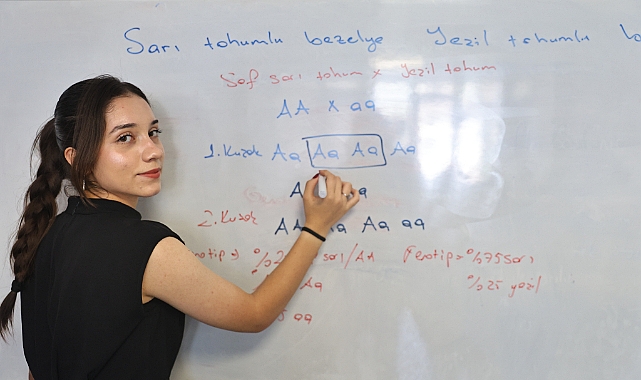 Sarı tohumlu bezelye Yeşil tohumlu
Saf sarı tohum x Yeşil tohum
AA x aa
1. Kuşak Aa Aa Aa Aa
2. Kuşak AA Aa Aa aa
sarı/AA Fenotip = %75 sarı
Aa %25 yeşil
aa